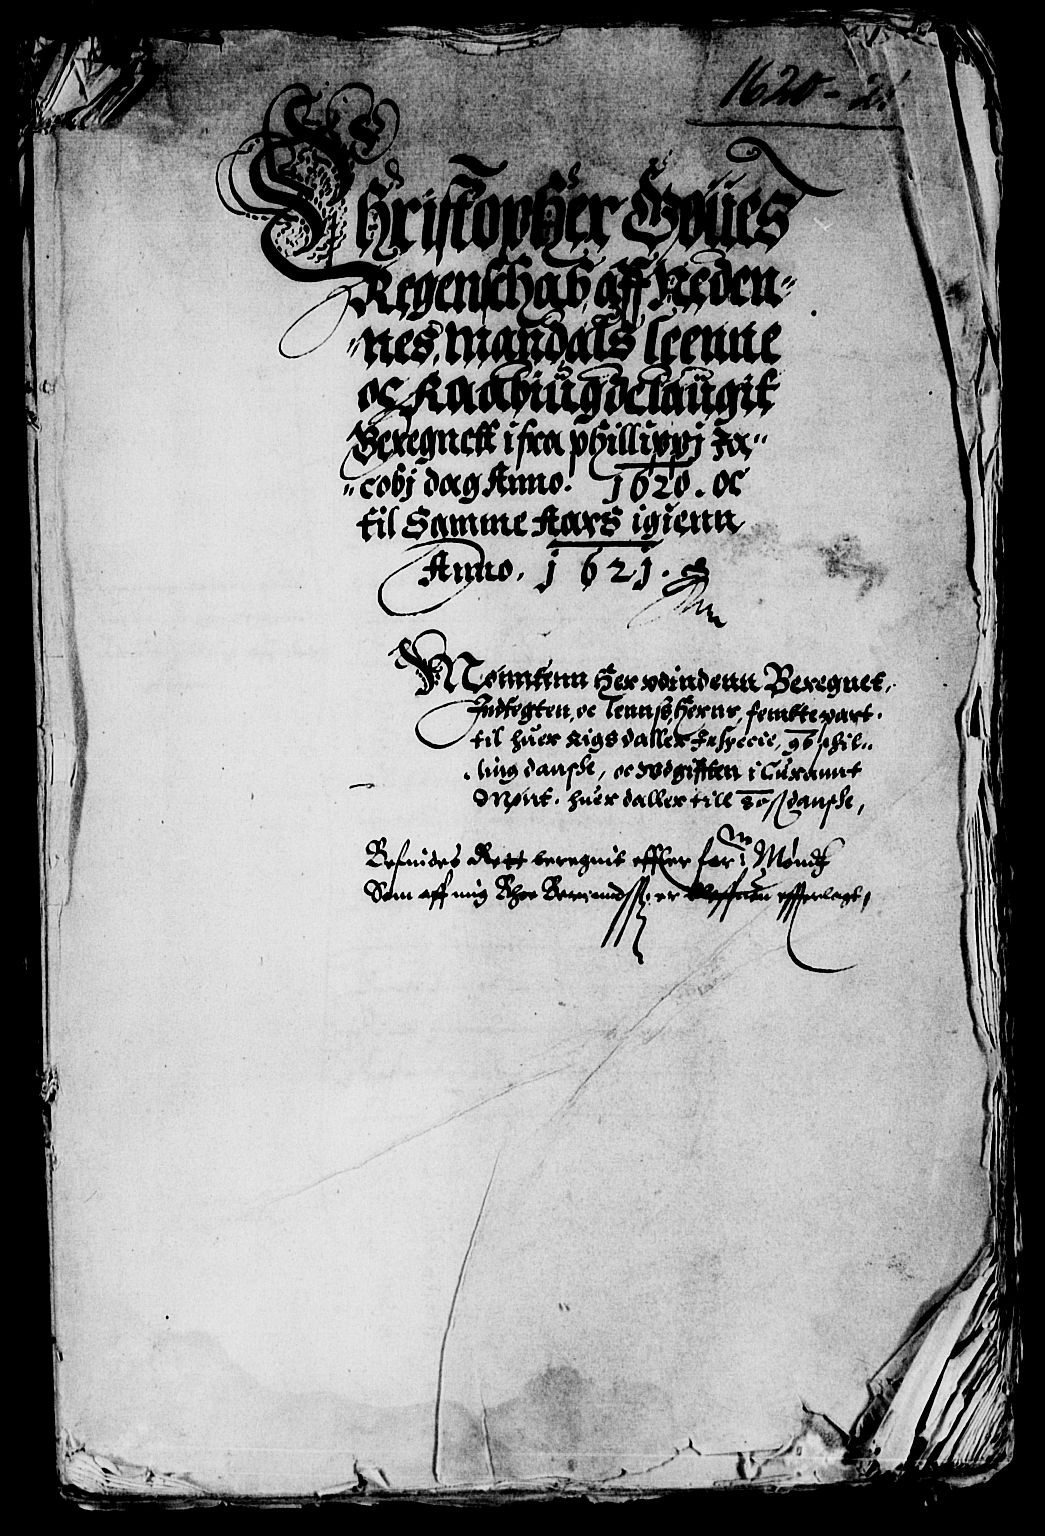 1620-21.
Christopher Gøües
Regenschab aff Neden-
nes, Mandals Leenne
oc Raabiugdelaugit
Beregnett ifra phillippj Ja-
cobj dag Anno. 1620. oc
til Samme Aars igienn
Anno. 1621.
Møntten her vdindenn Beregnet,
Indtegten, oc Lenns herns, femtte part.
til huer Rigsdaller In specie, 96 skil-
ling danske, oc Vdgifften i Curannt
Mønt. huer daller till 80 ß danske,
Befindes Rett beregnit effter for: Møndt
Som aff mig er effterlagt,